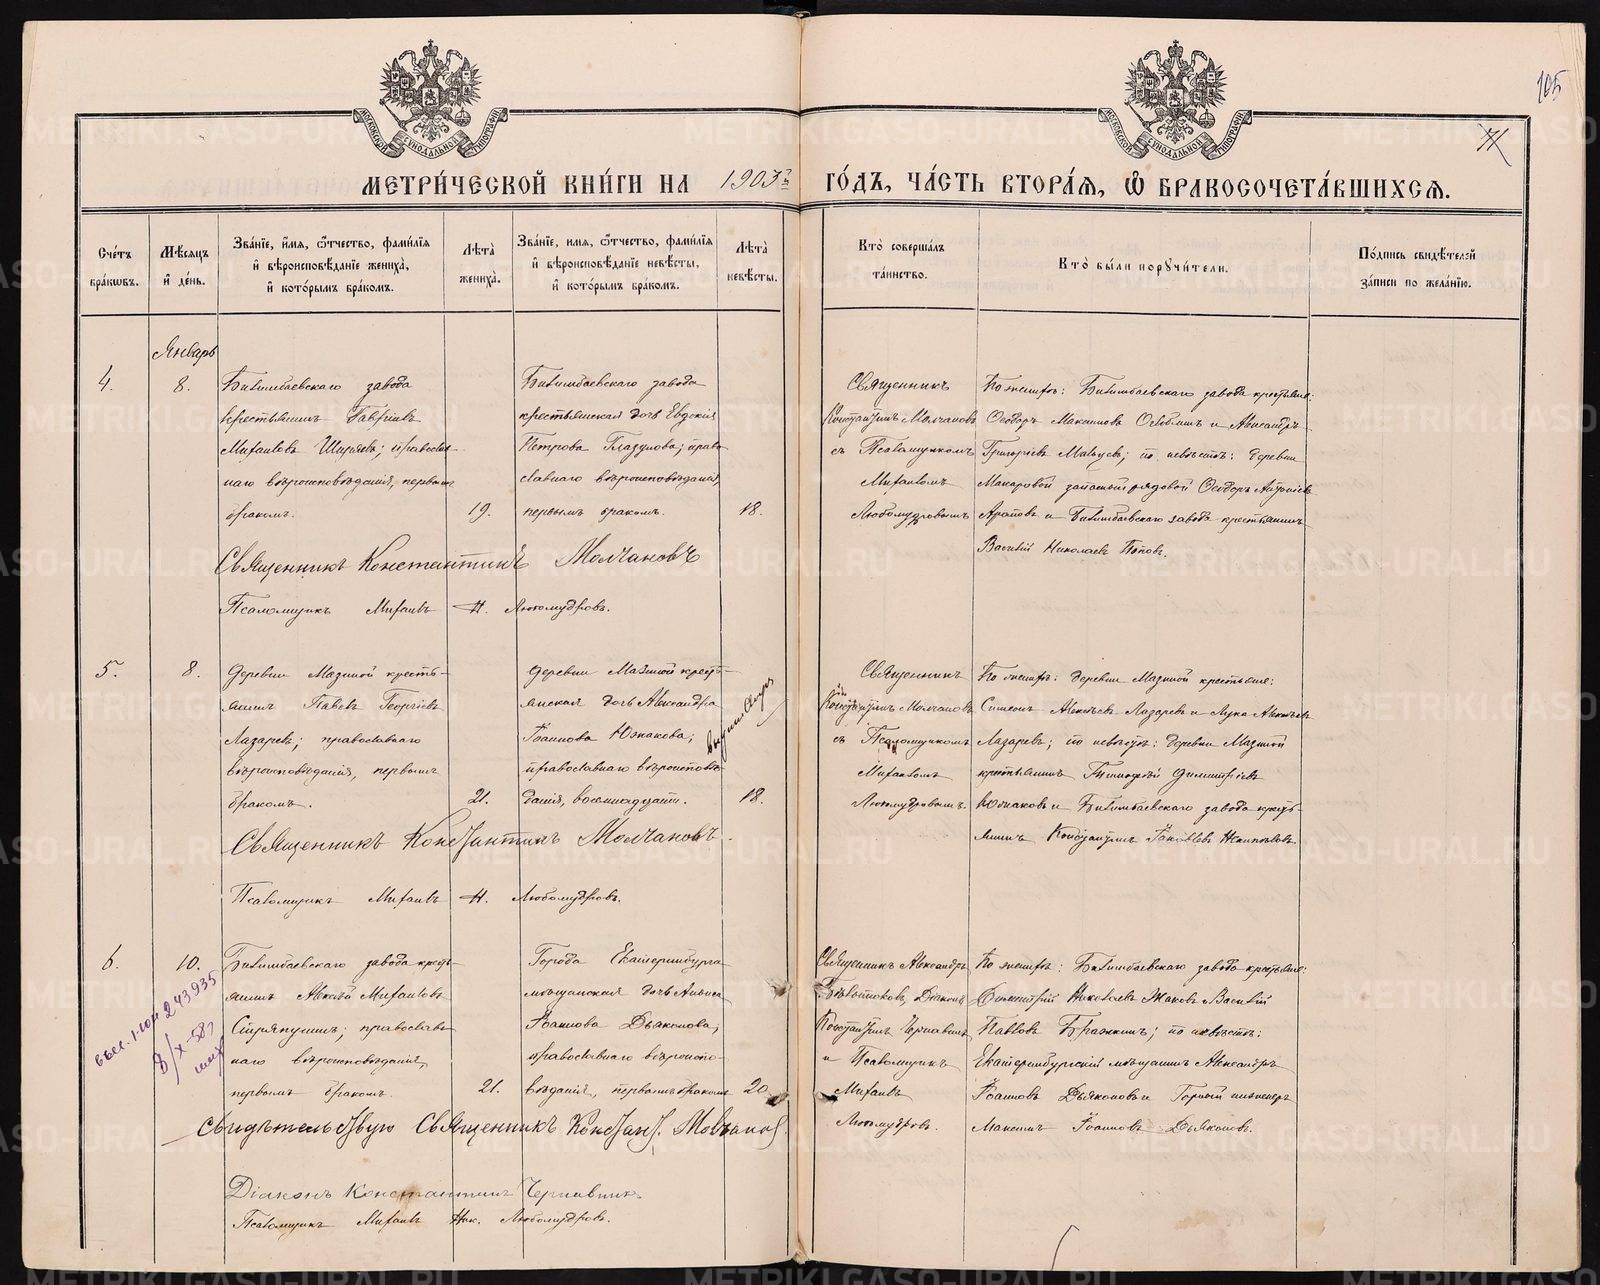 105
71
МЕТРИ́ЧЕСКОЙ КНИ́ГИ НА 1903й ГО́ДЪ, ЧА́СТЬ ВТОРА́Я, Ѡ БРАКОСОЧЕТА́ВШИХСЯ.
Сче́тъ бра́кѡвъ.
Мѣ́сяцъ и҆ де́нь.
Зва́нїе, и҆́мя, ѻ҆́тчество, фами́лїя и҆ вѣроисповѣ́данїе жениха̀, и҆ кото́рымъ бра́комъ.
Лѣ́та жениха̀.
Зва́нїе, и҆́мя, ѻ҆́тчество, фами́лїя и҆ вѣроисповѣ́данїе невѣ́сты, и҆ кото́рымъ бра́комъ.
Лѣ́та невѣ́сты.
Кто̀ соверша́лъ та́инство.
Кто̀ бы́ли поручи́тели.
По́дпись свидѣ́телей за́писи по жела́нїю.
Январь
4.
8.
Билимбаевскаго завода
крестьянинъ Гавріилъ
Михаиловъ Ширяевъ; православ-
наго вѣроисповѣданія, первымъ
бракомъ.
19.
Билимбаевскаго завода
крестьянская дочь Евдокія
Петрова Глазунова; право-
славнаго вѣроисповѣданія,
первымъ бракомъ.
18.
Священникъ
Константинъ Молчановъ
съ Псаломщикомъ
Михаиломъ
Любомудровымъ
По женихѣ: Билимбаевскаго завода крестьяне:
Ѳеодоръ Максимовъ и Александръ
Григорьевъ; по невѣстѣ: деревни
Макаровой запасный рядовой Ѳеодоръ
Араповъ и Билимбаевскаго завода крестьянинъ
Василій Николаевъ Поповъ.
Священникъ Константинъ Молчановъ
Псаломщикъ Михаилъ Н. Любомудровъ.
5.
8.
Деревни Мазиной кресть-
янинъ Павелъ Георгіевъ
Лазаревъ; православнаго
вѣроисповѣданія, первымъ
бракомъ.
21.
Деревни Мазиной кресть-
янская дочь Александра
Іоаннова Южакова;
православнаго вѣроисповѣ-
данія, восемнадцати.
18.
Священникъ
Константинъ Молчановъ
съ Псаломщикомъ
Михаиломъ
Любомудровымъ.
По женихѣ: деревни Мазиной крестьяне:
Симеонъ Алексѣевъ Лазаревъ и Лука Алексѣевъ
Лазаревъ; по невѣстѣ: деревни Мазиной
крестьянинъ Тимоѳей Димитріевъ
Южаковъ и Билимбаевскаго завода кресть-
янинъ Константинъ Іаковлевъ
Священникъ Константинъ Молчановъ.
Псаломщикъ Михаилъ Н. Любомудровъ.
6.
10.
Билимбаевскаго завода кресть-
янинъ Алексѣй Михаиловъ
Стряпунинъ; православ-
наго вѣроисповѣданія,
первымъ бракомъ.
21.
Города Екатеринбурга
мѣщанская дочь Анфиса
Іоаннова Дьяконова;
православнаго вѣроиспо-
вѣданія, первымъ бракомъ
20.
Священникъ Александръ
Діаконъ
Константинъ Чернавинъ
и Псаломщикъ
Михаилъ
Любомудровъ.
По женихѣ: Билимбаевскаго завода крестьяне:
Димитрій Николаевъ и Василій
Павловъ; по невѣстѣ:
Екатеринбургскій мѣщанинъ Александръ
Іоанновъ Дьяконовъ и Горный инженеръ
Максимъ Іоанновъ Дьяконовъ.
243935
8/X-58г
Свидѣтельствую Священникъ Констант. Молчановъ.
Діаконъ Константинъ Чернавинъ.
Псаломщикъ Михаилъ Ник. Любомудровъ.
METRIKI.GASO-URAL.RU